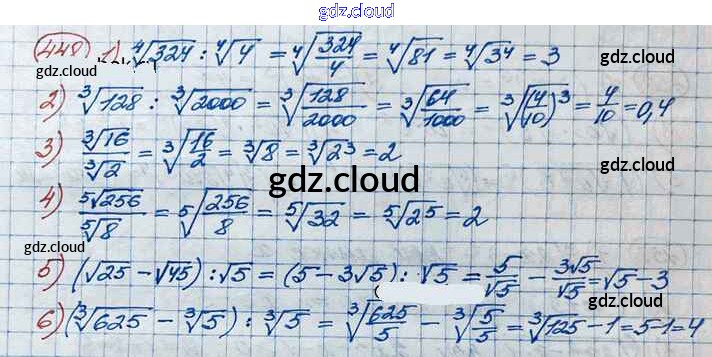 gdz.cloud
448) 1) ⁴√324 : ⁴√4 = ⁴√(324/4) = ⁴√81 = ⁴√3⁴ = 3
gdz.cloud gdz.cloud
2) ³√128 : ³√2000 = ³√(128/2000) = ³√(64/1000) = ³√(4/10)³ = 4/10 = 0,4
3) ³√16/³√2 = ³√(16/2) = ³√8 = ³√2³ = 2
gdz.cloud
gdz.cloud
4) ⁵√256/⁵√8 = ⁵√(256/8) = ⁵√32 = ⁵√2⁵ = 2
gdz.cloud
5) (√25 - √45) : √5 = (5 - 3√5) : √5 = 5/√5 - 3√5/√5 = √5 - 3
gdz.cloud
6) (³√625 - ³√5) : ³√5 = ³√(625/5) - ³√(5/5) = ³√125 - 1 = 5 - 1 = 4
gdz.cloud gdz.cloud